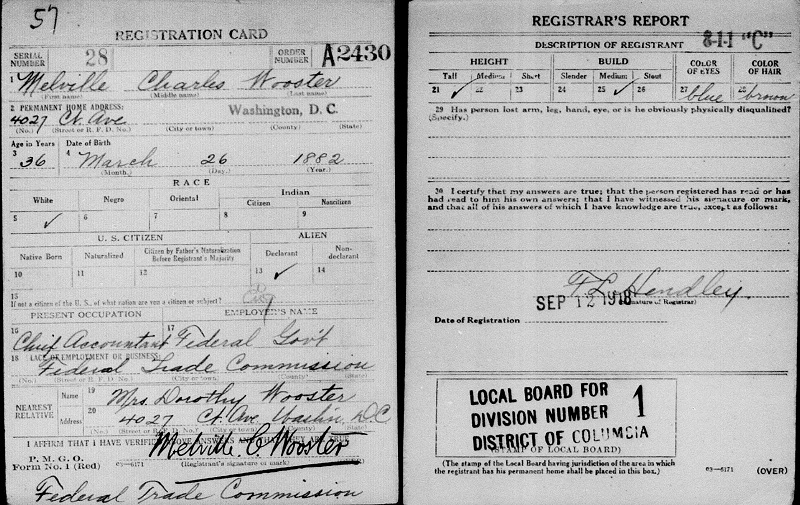 57
REGISTRATION CARD
SERIAL NUMBER 28 ORDER NUMBER A2430
1 Melville Charles Wooster
(First name) (Middle name) (Last name)
2 PERMANENT HOME ADDRESS: Washington, D. C.
4027 Ct. Ave
(No.) (Street or R. F. D. No.) (City or town) (County) (State)
Age in Years Date of Birth
3 36 4 March 26 1882
(Month.) (Day.) (Year.)
RACE
White Negro Oriental Indian
Citizen Noncitizen
5 ✓ 6 7 8 9
U. S. CITIZEN ALIEN
Native Born Naturalized Citizen by Father's Naturalization Before Registrant's Majority Declarant Non-declarant
10 11 12 13 ✓ 14
15
If not a citizen of the U. S., of what nation are you a citizen or subject? Eng
PRESENT OCCUPATION EMPLOYER'S NAME
16 Chief Accountant 17 Federal Gov't
18 PLACE OF EMPLOYMENT OR BUSINESS:
Federal Trade Commission
(No.) (Street or R. F. D. No.) (City or town) (County) (State)
NEAREST RELATIVE
Name 19 Mrs. Dorothy Wooster
Address 20 4027 Ct. Ave Washn. D C
(No.) (Street or R. F. D. No.) (City or town) (County) (State)
I AFFIRM THAT I HAVE VERIFIED ABOVE ANSWERS AND THAT THEY ARE TRUE
P. M. G. O.
Form No. 1 (Red) 03—6171 Melville C. Wooster
(Registrant's signature or mark)
Federal Trade Commission
REGISTRAR'S REPORT
8-1-1 "C"
DESCRIPTION OF REGISTRANT
HEIGHT BUILD COLOR OF EYES COLOR OF HAIR
Tall Medium Short Slender Medium Stout
21 ✓ 22 23 24 25 ✓ 26 27 blue 28 brown
29 Has person lost arm, leg, hand, eye, or is he obviously physically disqualified?
(Specify.)
30 I certify that my answers are true; that the person registered has read or has
had read to him his own answers; that I have witnessed his signature or mark,
and that all of his answers of which I have knowledge are true, except as follows:
F L Hendley
(Signature of Registrar)
Date of Registration SEP 12 1918
LOCAL BOARD FOR
DIVISION NUMBER 1
DISTRICT OF COLUMBIA
(STAMP OF LOCAL BOARD)
(The stamp of the Local Board having jurisdiction of the area in which
the registrant has his permanent home shall be placed in this box.)
03—6171 (OVER)